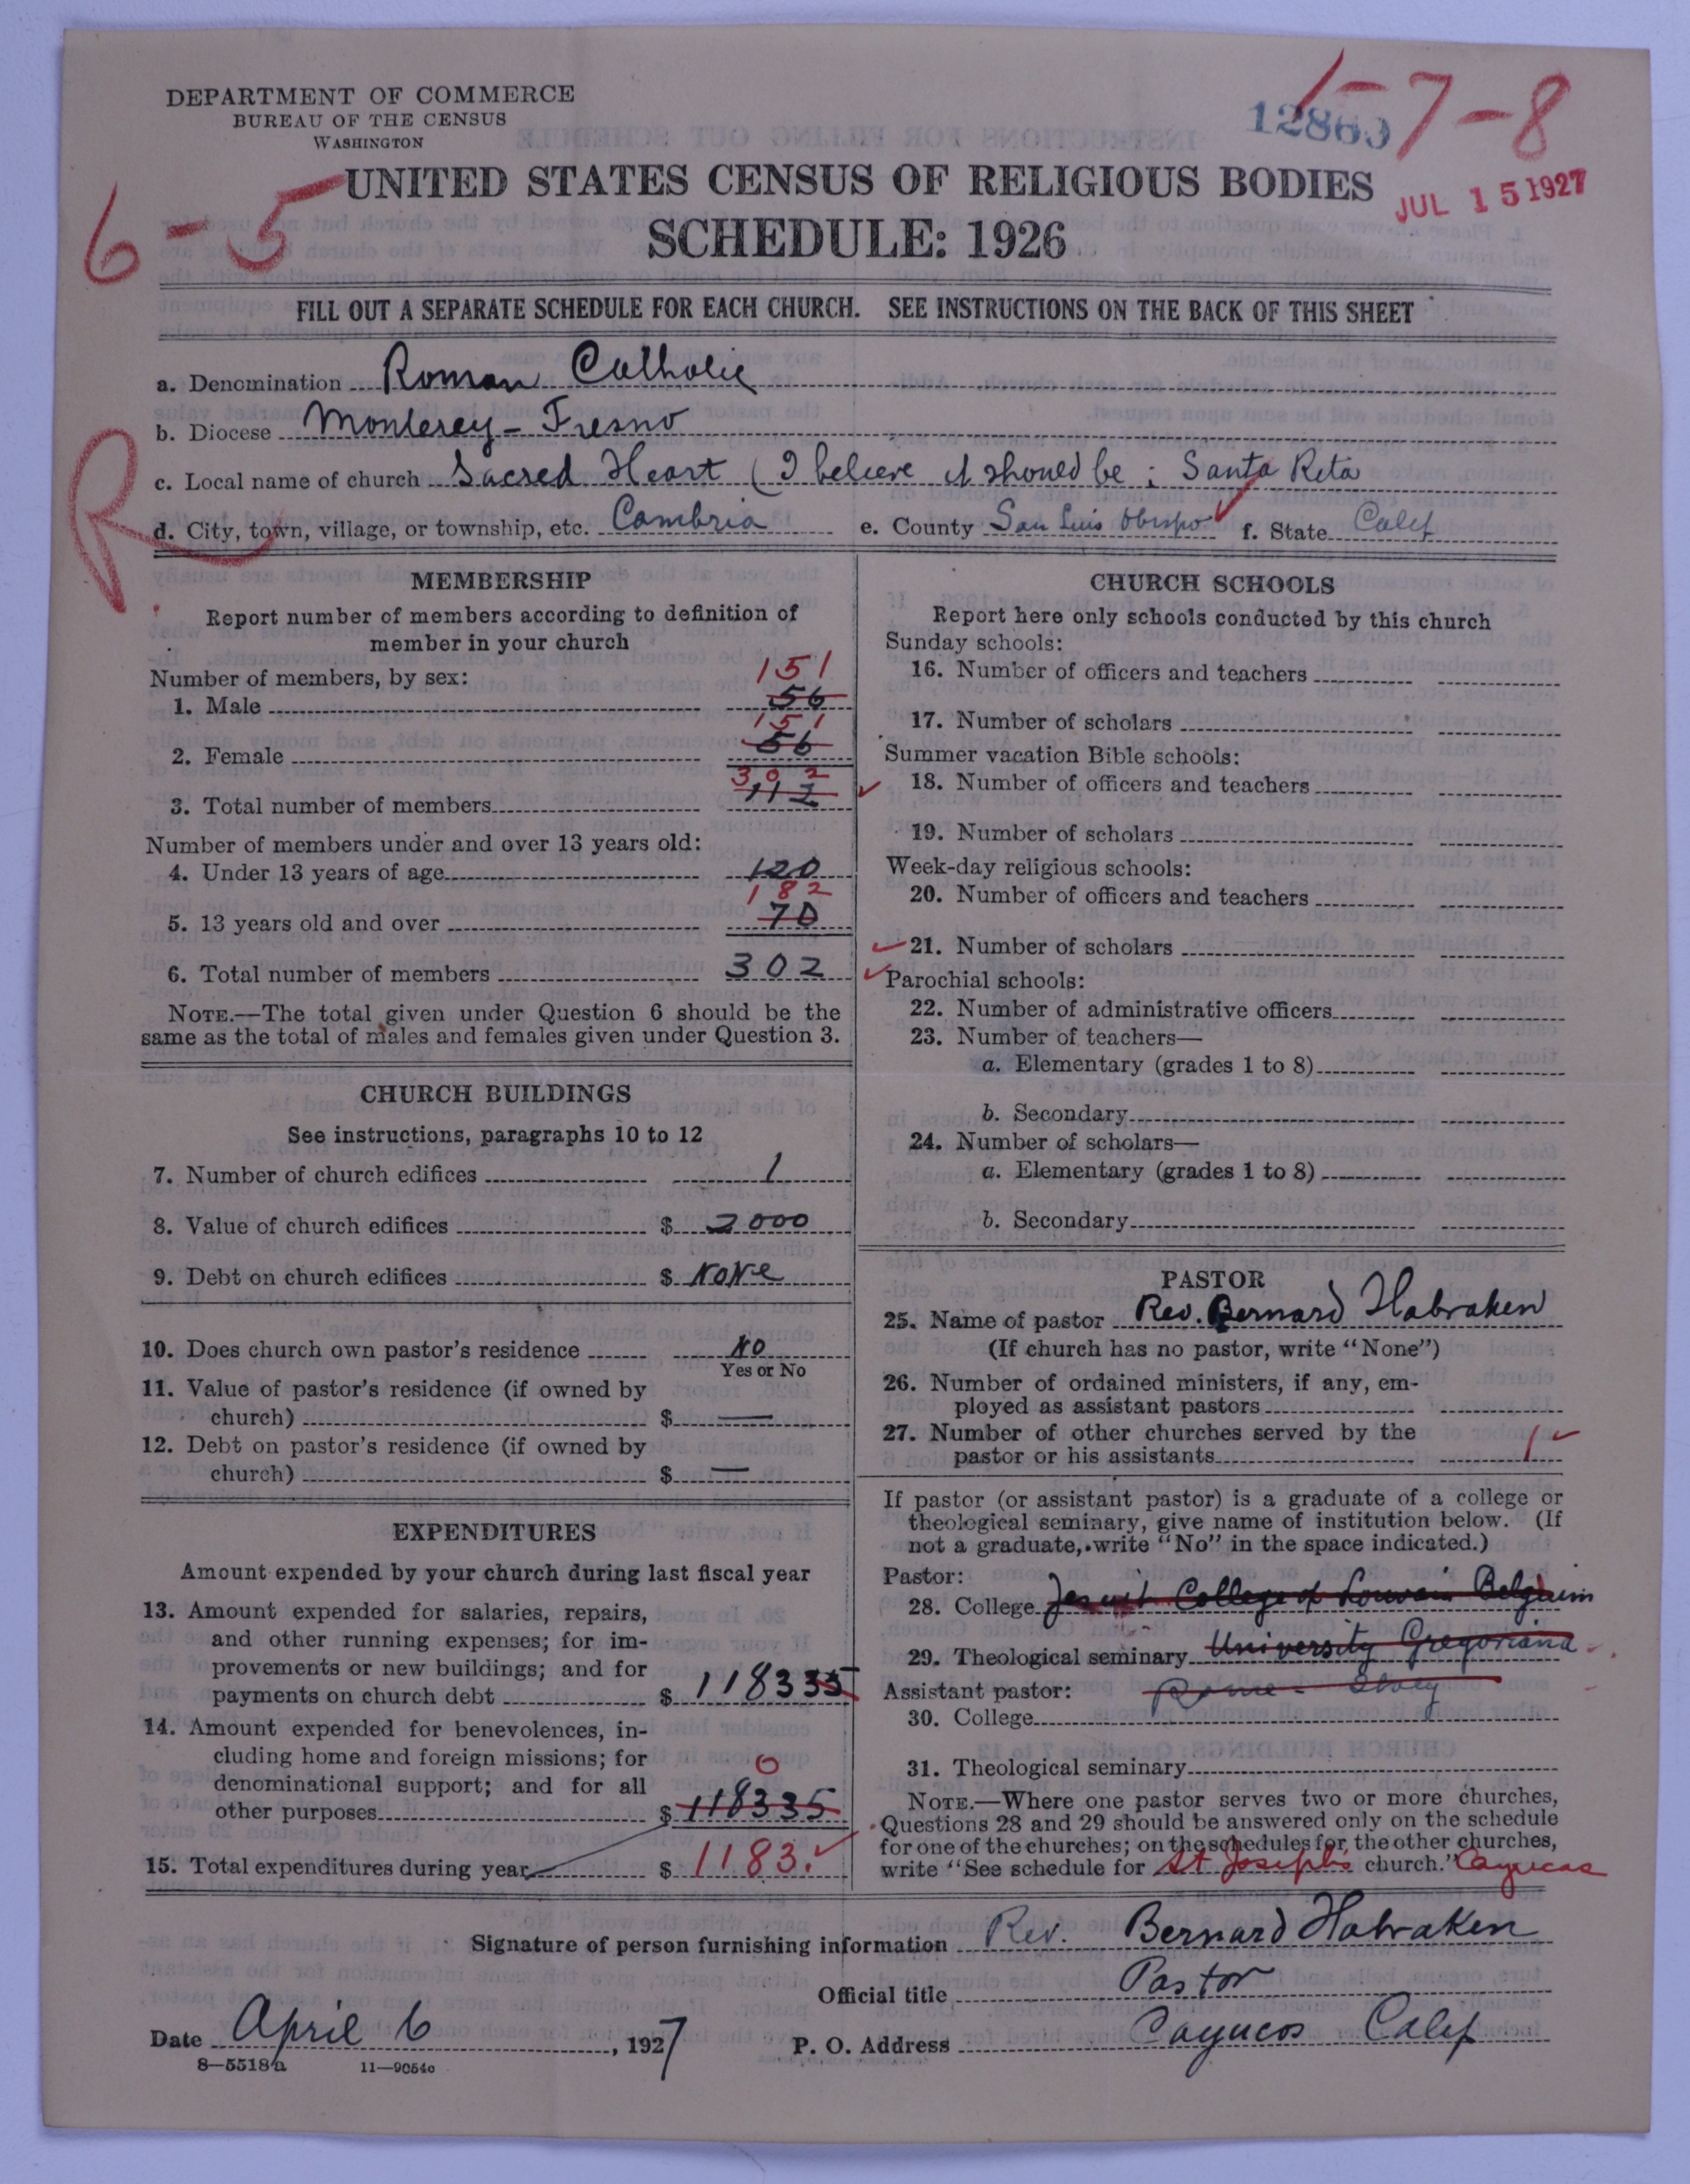 DEPARTMENT OF COMMERCE
BUREAU OF THE CENSUS
WASHINGTON
12860
1-7-8
6-5
UNITED STATES CENSUS OF RELIGIOUS BODIES
JUL 15 1927
SCHEDULE: 1926
FILL OUT A SEPARATE SCHEDULE FOR EACH CHURCH. SEE INSTRUCTIONS ON THE BACK OF THIS SHEET
R
a. Denomination Roman Catholic
b. Diocese Monterey-Fresno
c. Local name of church Sacred Heart (I believe it should be: Santa Rita
d. City, town, village, or township, etc. Cambria e. County San Luis Obispo f. State Calif
MEMBERSHIP
Report number of members according to definition of
member in your church
Number of members, by sex:
151
1. Male 56
151
2. Female 56
302
3. Total number of members 112
Number of members under and over 13 years old:
4. Under 13 years of age 120
182
5. 13 years old and over 70
6. Total number of members 302
NOTE.—The total given under Question 6 should be the
same as the total of males and females given under Question 3.
CHURCH BUILDINGS
See instructions, paragraphs 10 to 12
7. Number of church edifices 1
8. Value of church edifices $ 2000
9. Debt on church edifices $ None
10. Does church own pastor's residence No
Yes or No
11. Value of pastor's residence (if owned by
church) $ —
12. Debt on pastor's residence (if owned by
church) $ —
EXPENDITURES
Amount expended by your church during last fiscal year
13. Amount expended for salaries, repairs,
and other running expenses; for im-
provements or new buildings; and for
payments on church debt $ 118335
14. Amount expended for benevolences, in-
cluding home and foreign missions; for
denominational support; and for all
0
other purposes $ 118335
15. Total expenditures during year $ 1183.
CHURCH SCHOOLS
Report here only schools conducted by this church
Sunday schools:
16. Number of officers and teachers
17. Number of scholars
Summer vacation Bible schools:
18. Number of officers and teachers
19. Number of scholars
Week-day religious schools:
20. Number of officers and teachers
21. Number of scholars
Parochial schools:
22. Number of administrative officers
23. Number of teachers—
a. Elementary (grades 1 to 8)
b. Secondary
24. Number of scholars—
a. Elementary (grades 1 to 8)
b. Secondary
PASTOR
25. Name of pastor Rev. Bernard Habraken
(If church has no pastor, write "None")
26. Number of ordained ministers, if any, em-
ployed as assistant pastors
27. Number of other churches served by the
pastor or his assistants 1
If pastor (or assistant pastor) is a graduate of a college or
theological seminary, give name of institution below. (If
not a graduate, write "No" in the space indicated.)
Pastor:
28. College Jesuit College of Louvain Belgium
29. Theological seminary University Gregoriana
Assistant pastor: Rome - Italy
30. College
31. Theological seminary
NOTE.—Where one pastor serves two or more churches,
Questions 28 and 29 should be answered only on the schedule
for one of the churches; on the schedules for the other churches,
write "See schedule for St Joseph's church." Cayucas
Signature of person furnishing information Rev. Bernard Habraken
Official title Pastor
Date April 6, 1927 P. O. Address Cayucos Calif
8—5518a 11—9054c